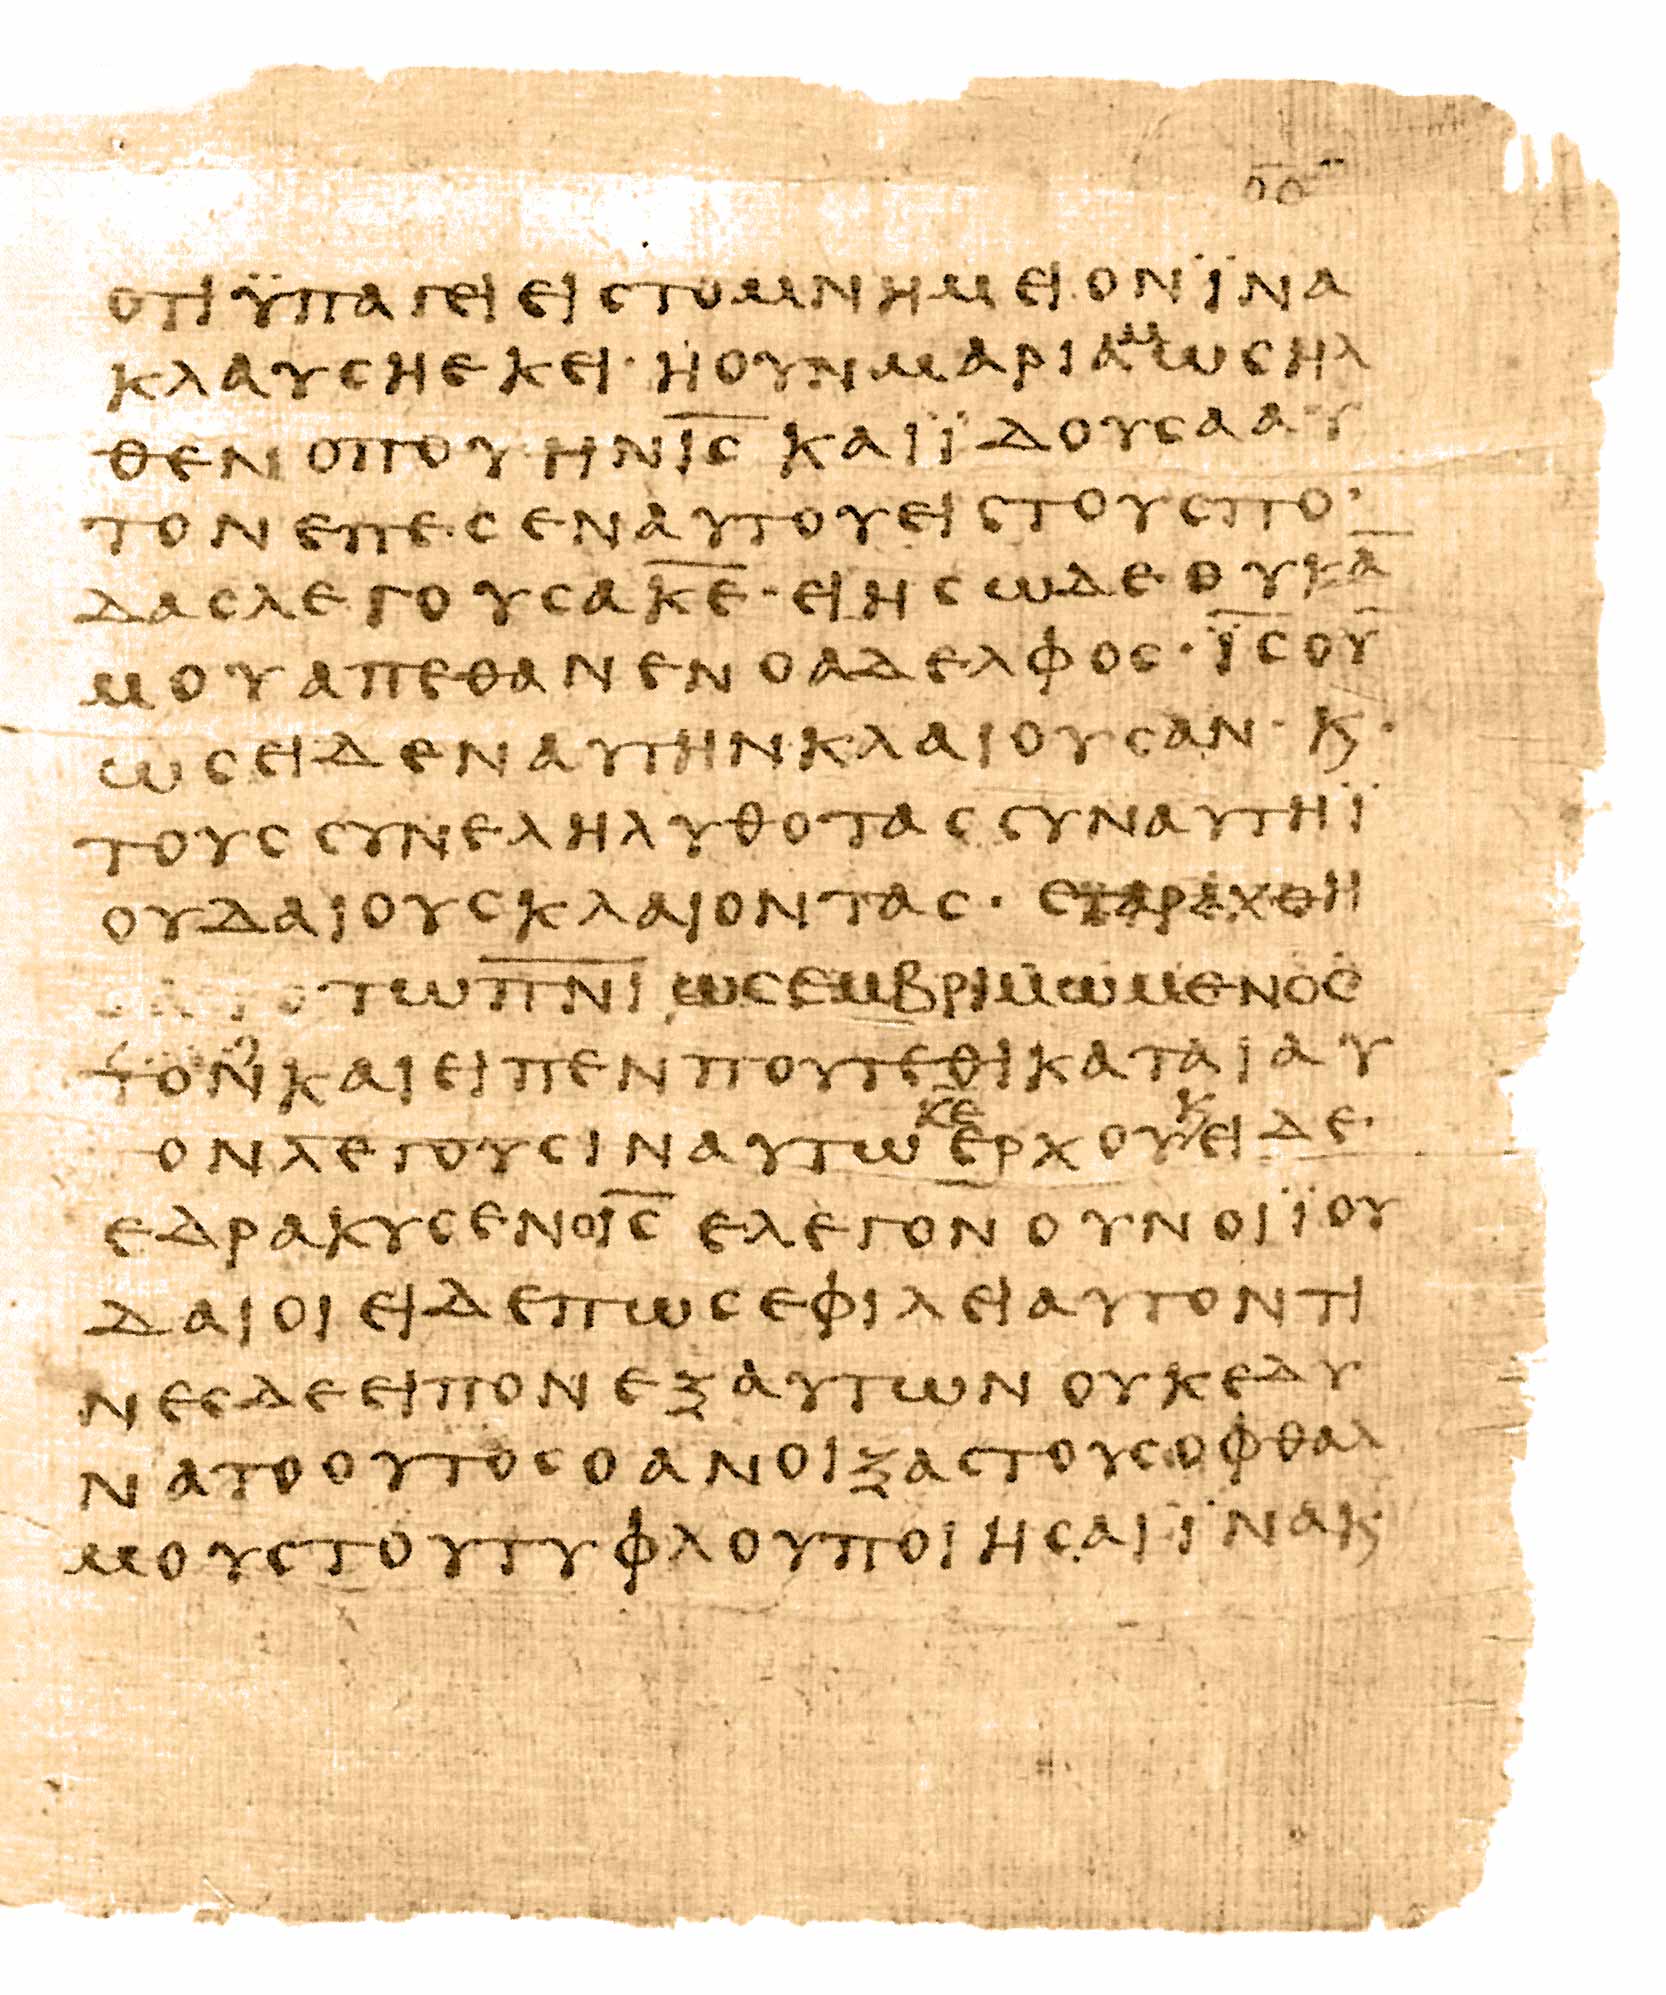 οα
οτι ϋπαγει εις το μνημειον ϊνα
κλαυση εκει · η ουν μαριαμ ως ηλ
θεν οπου ην ι̅ς̅ και ϊδουσα αυ
τον επεσεν αυτου εις τους πο
δας λεγουσα κ̅ε̅ · ει ης ωδε ουκ α̅
μου απεθανεν ο αδελφος · ι̅ς̅ ου̅
ως ειδεν αυτην κλαιουσαν · κ ·
τους συνεληλυθοτας συν αυτη ϊ
ουδαιους κλαιοντας · εταραχθη
τω π̅ν̅ι̅ ως εμβριμωμενος
και ειπεν που τεθικατai αυ
ον λεγουσιν αυτω κ̅ε̅ ερχου κ ειδε ·
εδρακυσεν ο ι̅ς̅ ελεγον ουν οι ϊου
δαιοι ειδε πως εφιλει αυτον τι
νες δε ειπον εξ αυτων ουκ εδυ
νατο ουτος ο ανοιξας τους οφθαλ
μους του τυφλου ποιησαι ϊνα κ